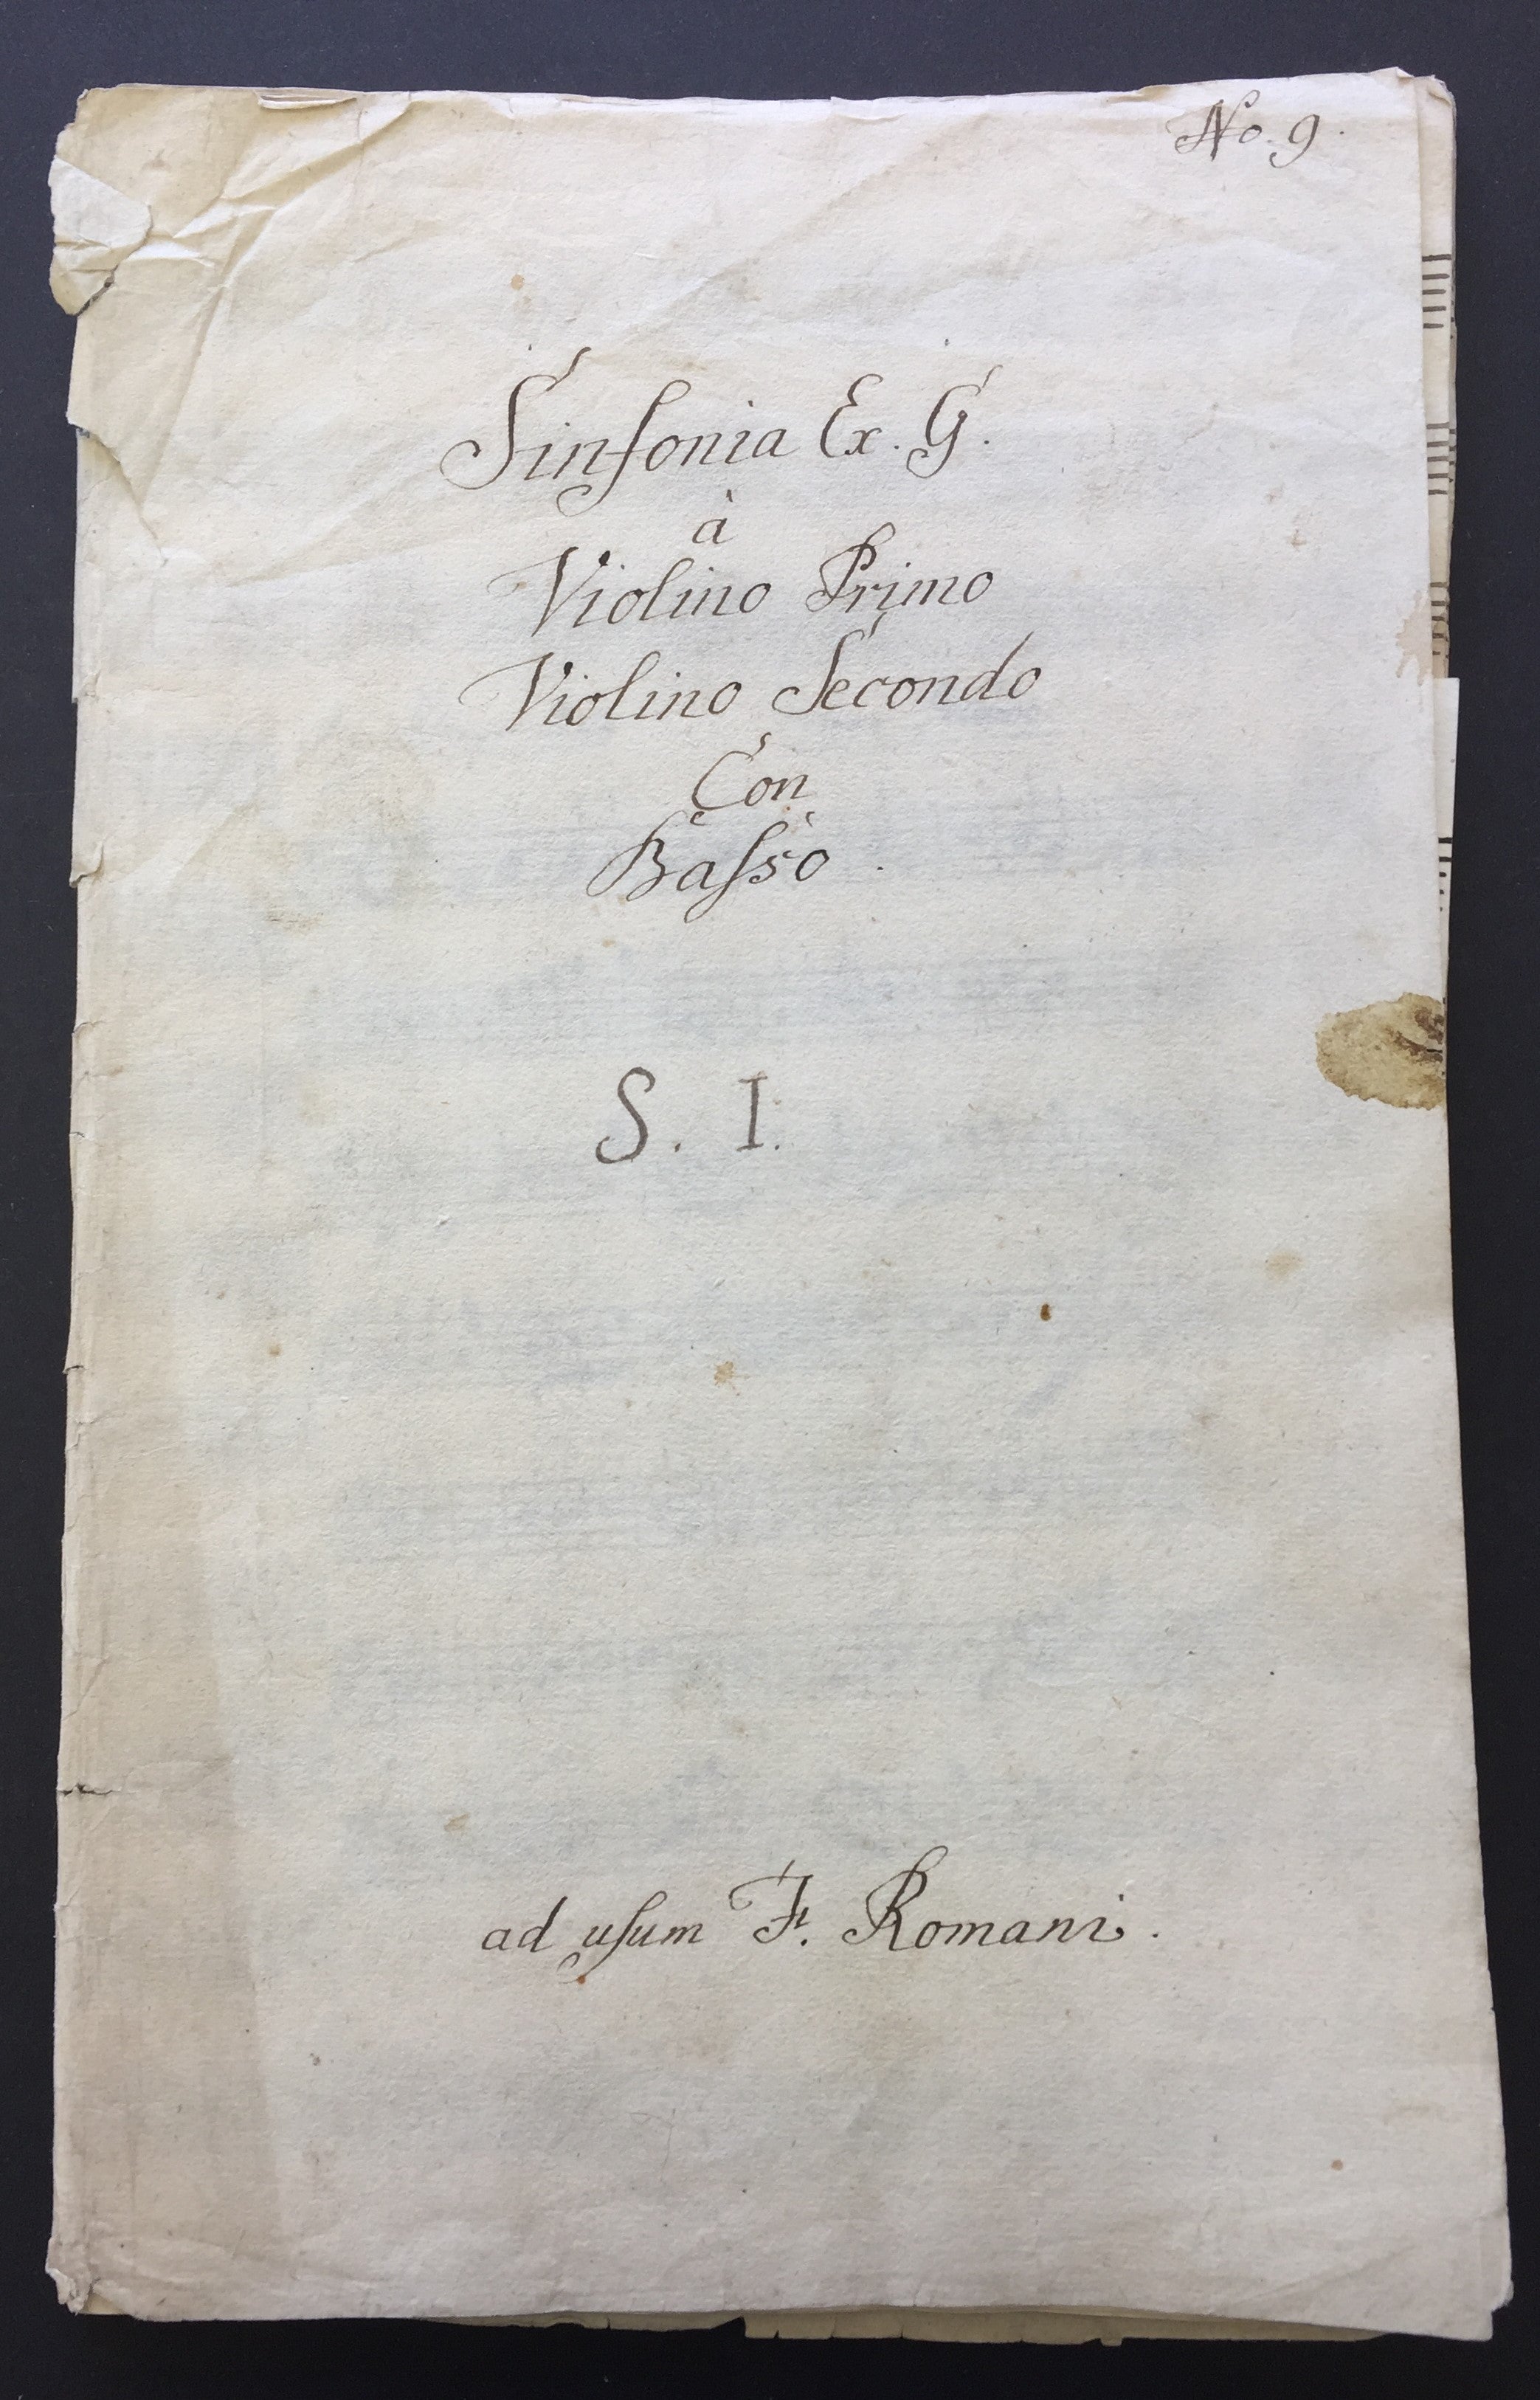 No. 9.
Sinfonia Ex. G.
à
Violino Primo
Violino Secondo
Con
Baſso.
S. I.
ad uſum F. Romani.